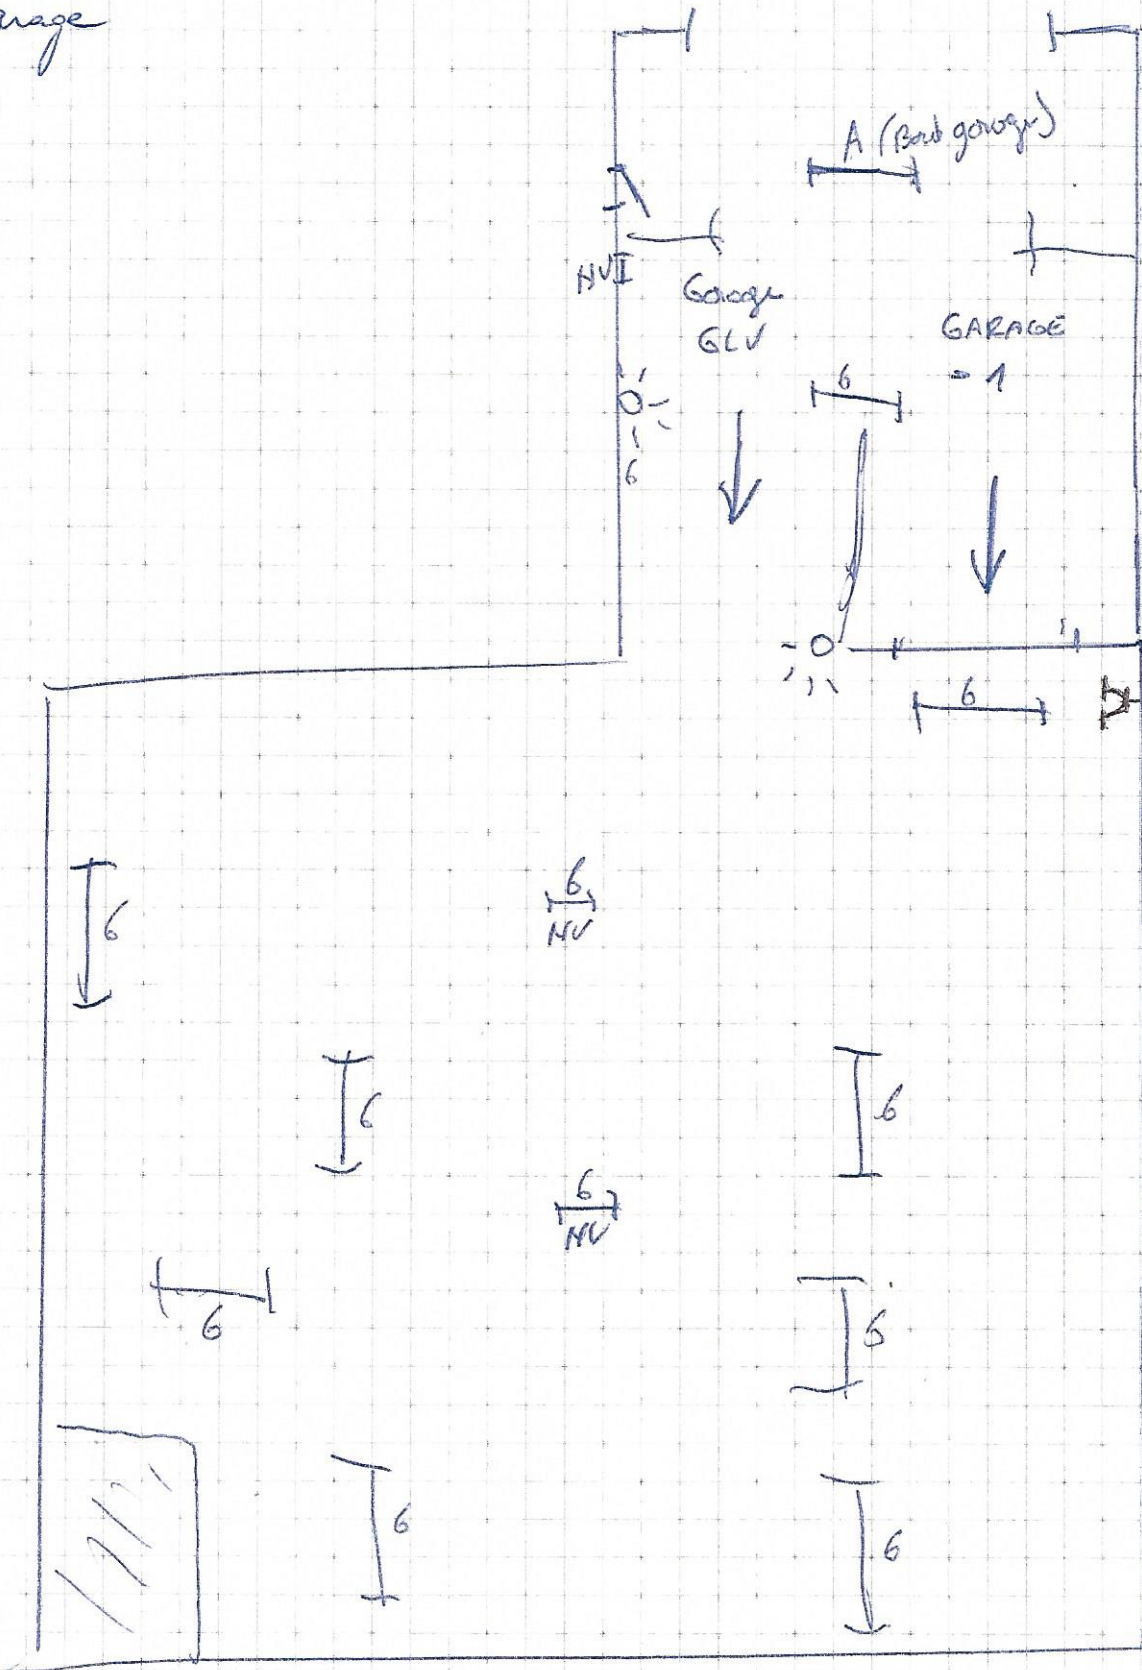 A (Bout garage)
NV
Garage
GLV
GARAGE
- 1
6
6
6
6
6
NV
6
6
6
NV
6
6
6
6